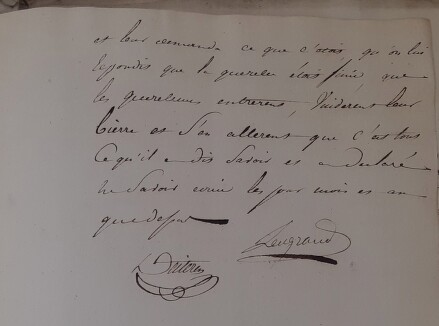 et leur demanda ce que c'etoit qu'on lui
repondit que la querelle étoit finie, que
les querelleurs entrerent, Vuiderent leur
bierre et s'en allerent que c'est tous
Ce qu'il a dit Savoir et a declaré
ne Savoir ecrire les jour mois et an
que dessus